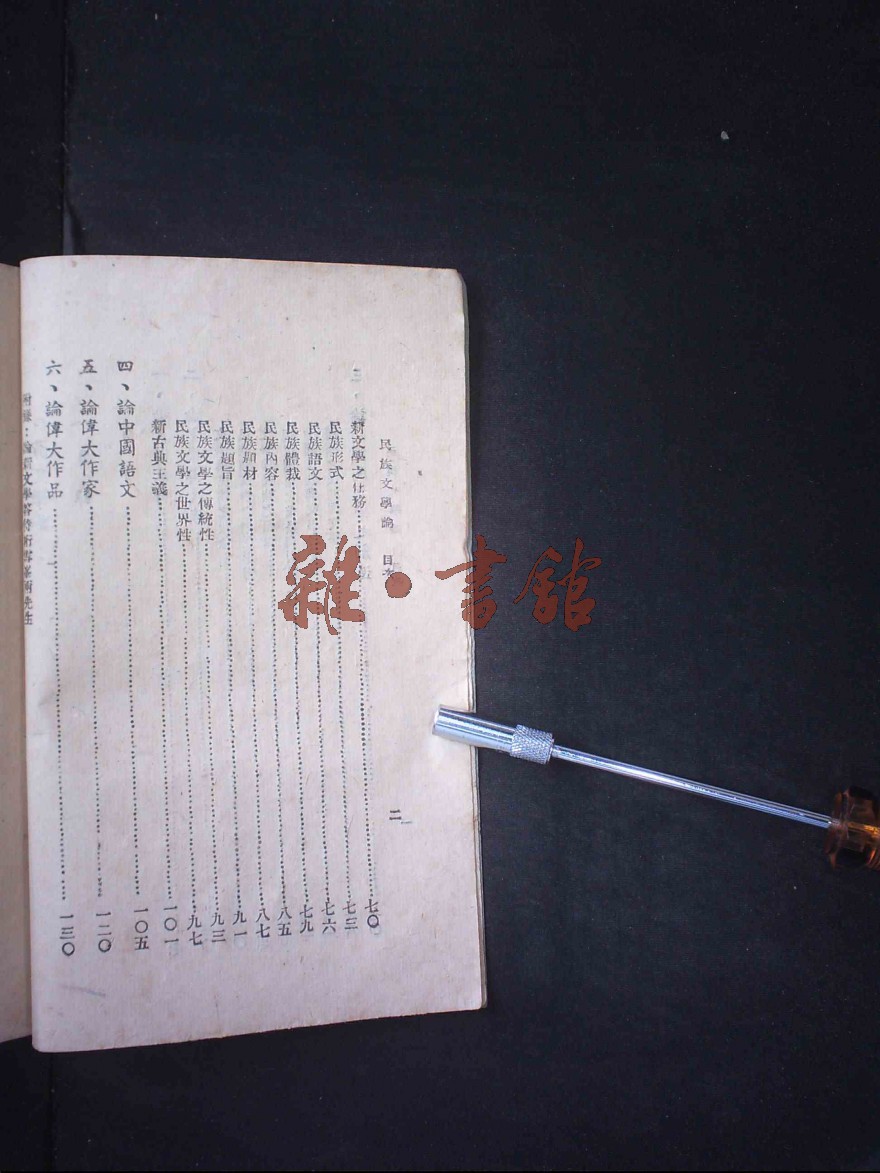 民族文學論 目次
二
新文學之任務 七〇
民族形式 七三
民族語文 七六
民族體裁 七九
民族內容 八五
民族題材 八七
民族題旨 九一
民族文學之傳統性 九三
民族文學之世界性 九七
新古典主義 一〇一
四、論中國語文 一〇五
五、論偉大作家 一二〇
六、論偉大作品 一三〇
雜·書館